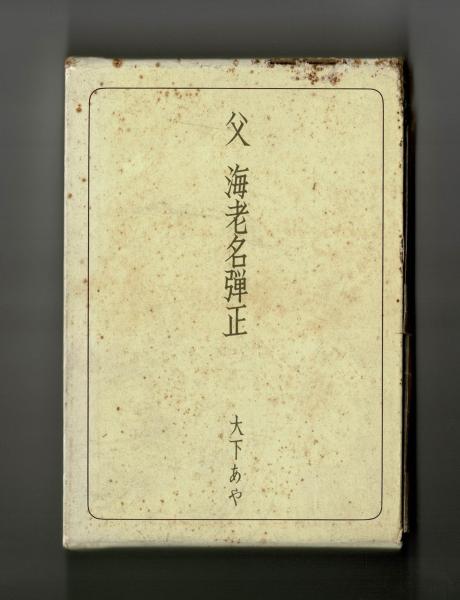 父 海老名弾正
大下あや